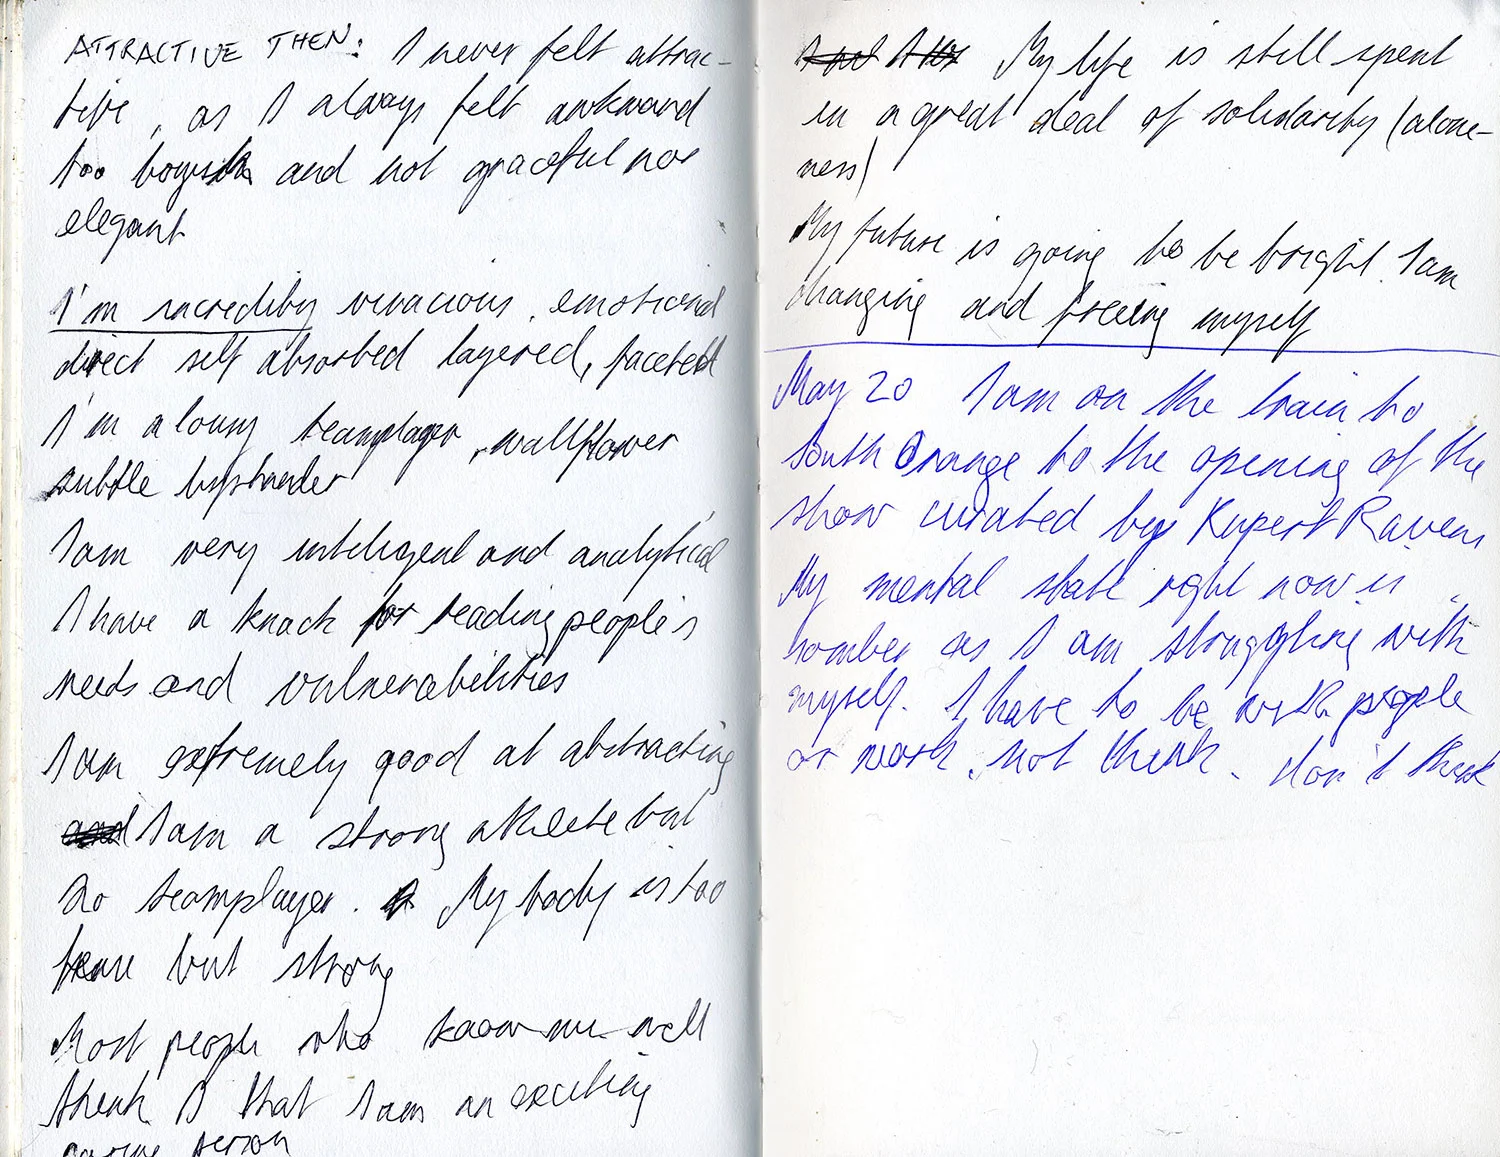 ATTRACTIVE THEN: I never felt attrac-
tive, as I always felt awkward
too boyish and not graceful nor
elegant
I'm incredibly vivacious, emotional
direct self absorbed layered, faceted
I'm a lousy teamplayer, wallflower
subtle bystander
I am very inteligent and analytical
I have a knack for reading people's
needs and vulnerabilities
I am extremely good at abstracting
and I am a strong athlete but
no teamplayer. My body is too
but strong
Most people who know me well
think that I am an exciting
person
My life is still spent
in a great deal of solidarity (alone-
ness)
My future is going to be bright. I am
changing and freeing myself
May 20 I am on the train to
South Orange to the opening of the
show curated by Rupert Ravens
My mental state right now is
somber as I am struggling with
myself. I have to be with people
or work, not think. don't think